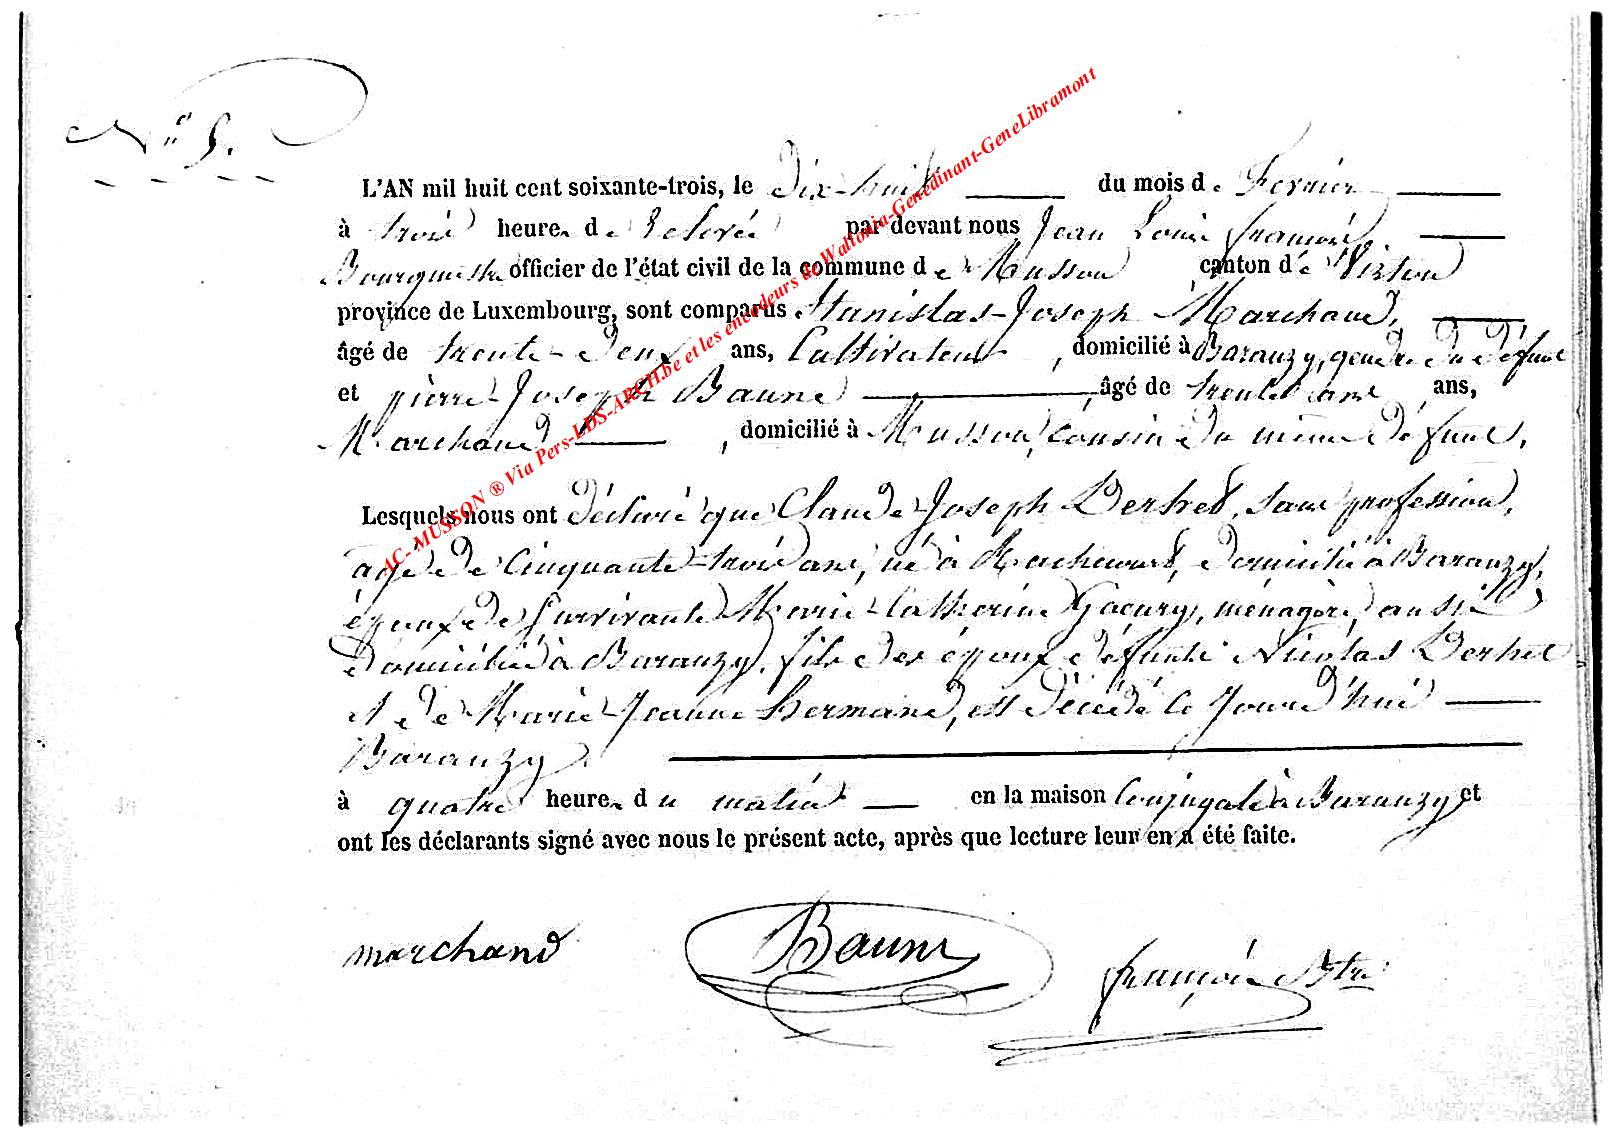 N° 5.
L'AN mil huit cent soixante-trois, le Dix-huit du mois de Fevrier
à trois heures de relevée par devant nous Jean Louis françois
Bourgmestre officier de l'état civil de la commune de Musson canton de Virton
province de Luxembourg, sont comparus Stanislas-Joseph Marchand,
âgé de trente-deux ans, Cultivateur, domicilié à Baranzy, gendre du défunt
et pierre-Joseph Baune âgé de trente ans,
Marchand, domicilié à Musson, cousin du même défunt,
Lesquels nous ont déclaré que Claude Joseph Derhet, sans profession,
agé de Cinquante-trois ans, né à Rachecourt, domicilié à Baranzy,
époux de survivante Marie-Catherine Goeury, ménagère, aussi
domiciliée à Baranzy, fils des époux défunts Nicolas Derhet
et de Marie-Jeanne Hermand, est décédé ce Jourd'hui
Baranzy.
à quatre heures du matin en la maison Conjugale à Baranzy et
ont les déclarants signé avec nous le présent acte, après que lecture leur en a été faite.
marchand Baune françois Bstre
AC- MUSSON ® Via Pers-LDS-ARCH.be et les encodeurs de Wallonia-Genedinant-GeneLibramont